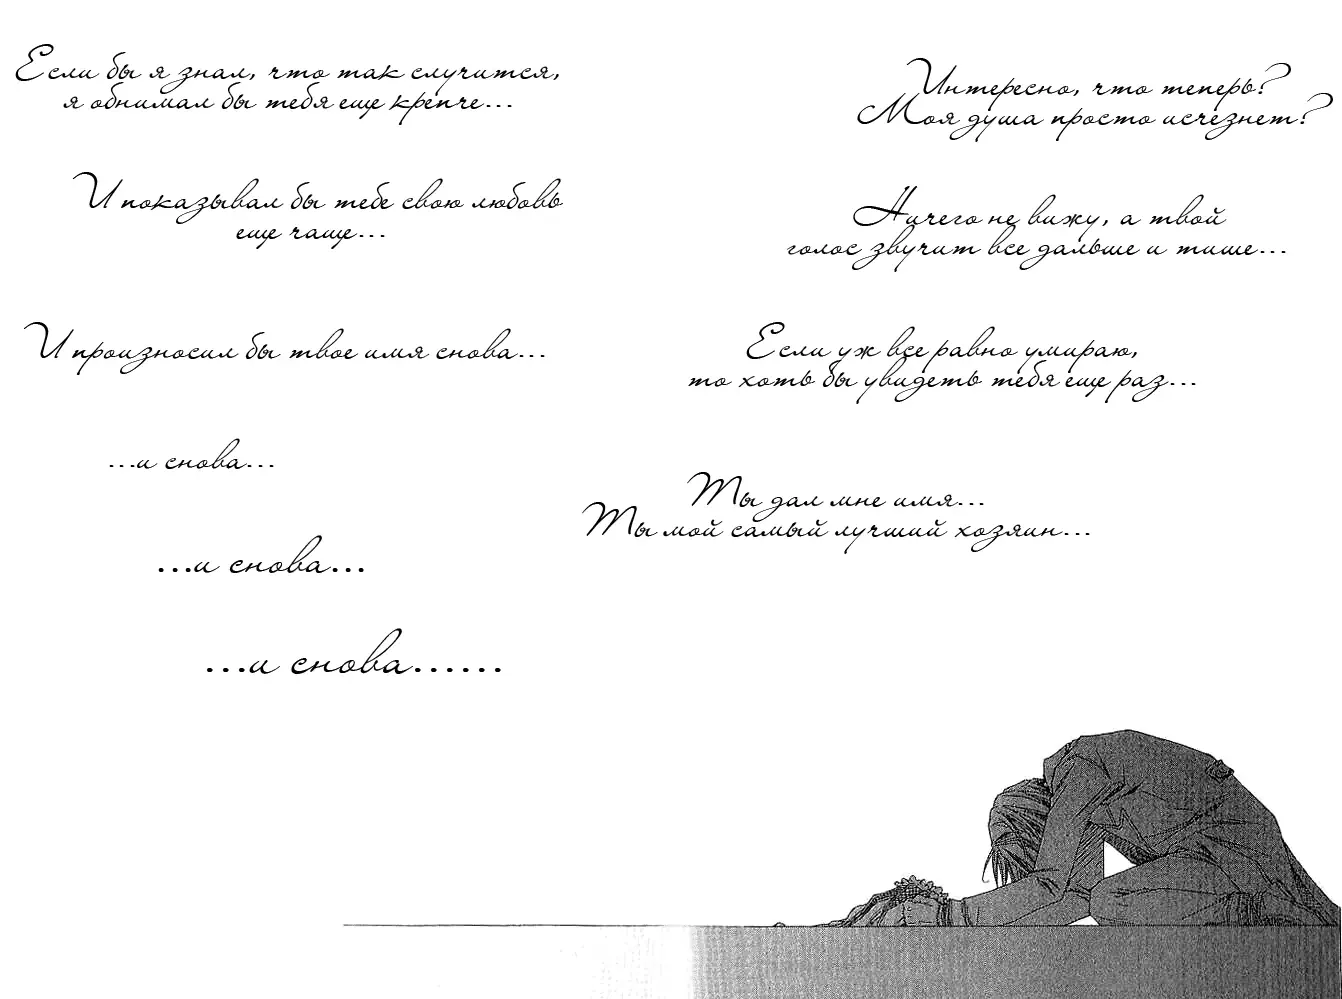 Если бы я знал, что так случится,
я обнимал бы тебя еще крепче...
И показывал бы тебе свою любовь
еще чаще...
И произносил бы твое имя снова...
...и снова...
...и снова...
...и снова......
Интересно, что теперь?
Моя душа просто исчезнет?
Ничего не вижу, а твой
голос звучит все дальше и тише...
Если уж все равно умираю,
то хоть бы увидеть тебя еще раз...
Ты дал мне имя...
Ты мой самый лучший хозяин...